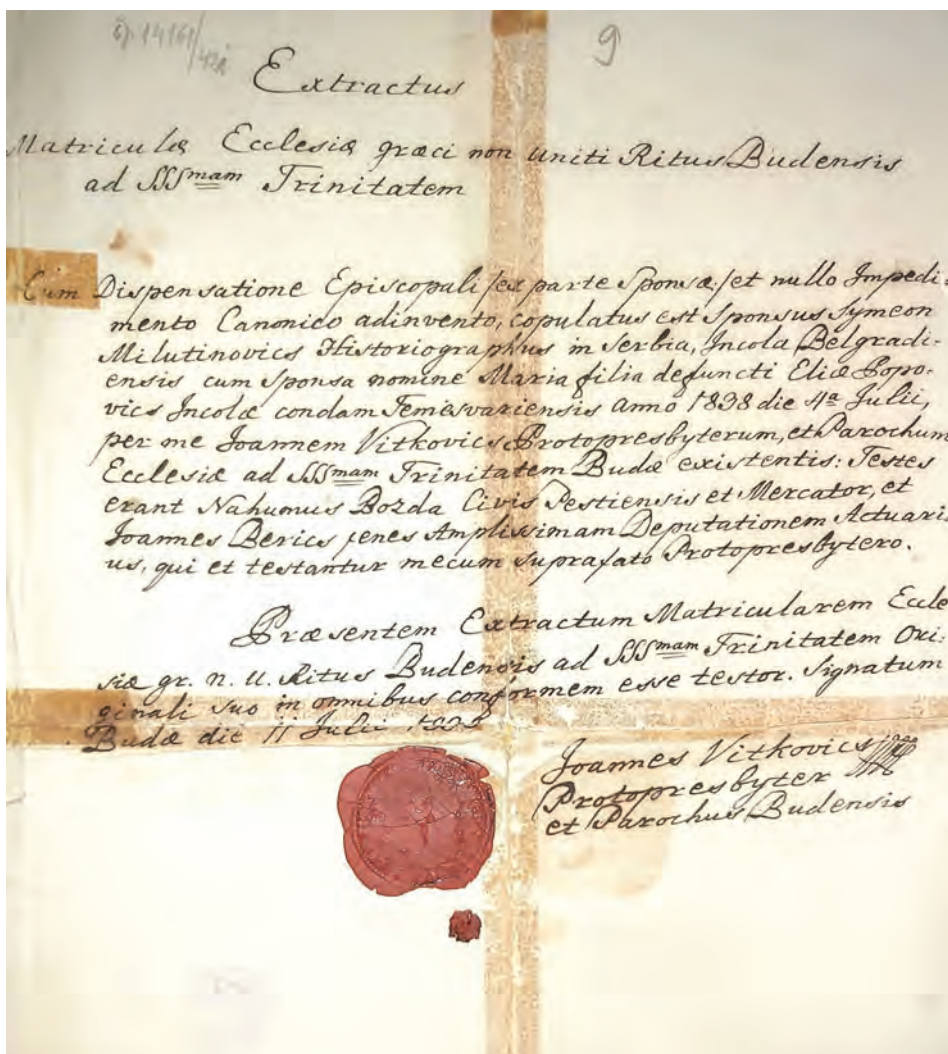 9
Extractus
Matriculæ Ecclesiæ græci non uniti Ritus Budensis
ad SSSmam Trinitatem
Cum Dispensatione Episcopali /:ex parte Sponsæ:/ et nullo Impedi-
mento Canonico adinvento, copulatus est Sponsus Symeon
Milutinovics Historiographus in Serbia, Incola Belgradi-
ensis cum Sponsa nomine Maria filia defuncti Eliæ Popo-
vics Incolæ condam Temesvariensis anno 1838 die 4a Julii,
per me Joannem Vitkovics Protopresbyterum, et Parochum
Ecclesiæ ad SSSmam Trinitatem Budæ existentis: Testes
erant Nahumus Bozda Civis Pestiensis et Mercator, et
Joannes Berics penes Amplissimam Deputationem Actuari-
us, qui et testantur mecum suprafato Protopresbytero.
Præsentem Extractum Matricularem Eccle
siæ gr. n. U. Ritus Budensis ad SSSmam Trinitatem Ori-
ginali suo in omnibus conformem esse testor. Signatum
Budæ die 11 Julii
Joannes Vitkovics
Protopresbyter
et Parochus Budensis